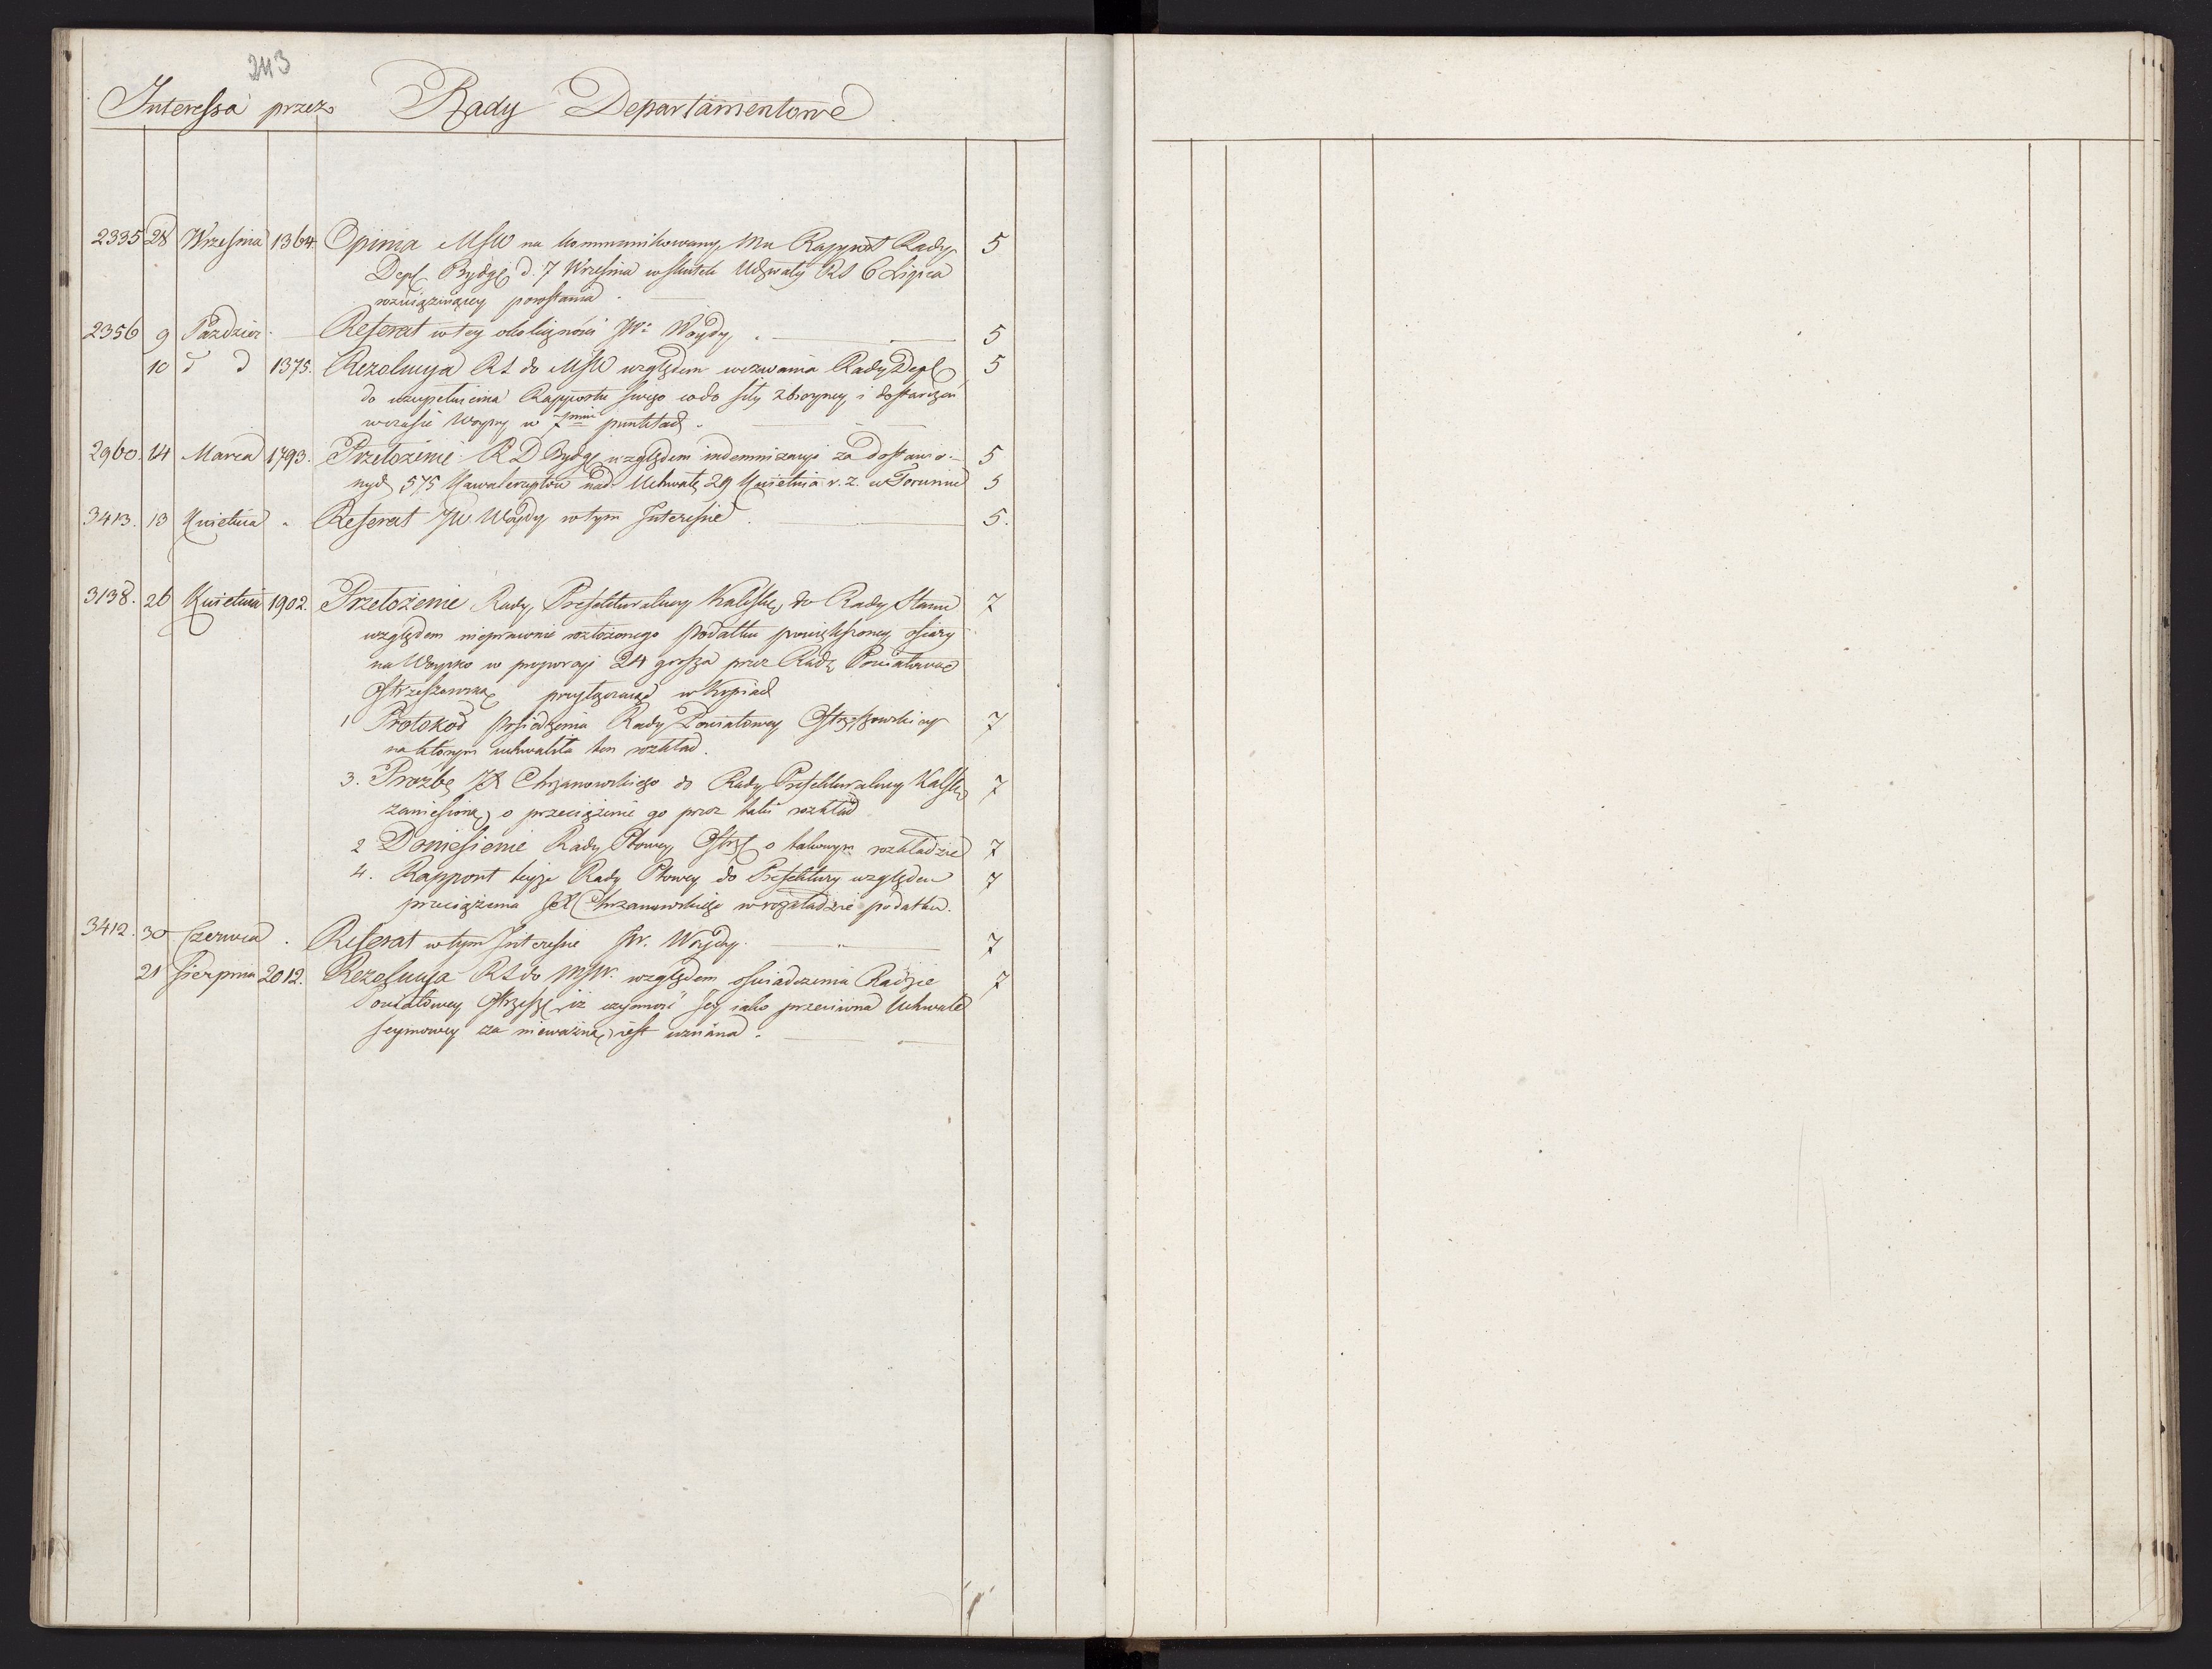 243
Interessa przez Rady Departamentowe
2335 28 Września 1364. Opinia MSW na kommunikowany mu Rapport Rady 5
Dept Bydg d. 7 Września w skutek Uchwały RS 6 Lipca
powstania.
2356 9 Paździer. Referat w tey okoliczności JW. Woydy. 5
10 d d 1375. Rezolucya RS do MSW względem wezwania Rady Dept 5
do uzupełnienia Rapportu swego co do siły zbroyney i dostarczeń
w czasie Woyny w 7miu punktach.
2960. 14 Marca 1793. Przełożenie R D Bydg względem indemnizacyi za dostawio- 5
nych 575 Kawalerzystów nad Uchwałę 29 Kwietnia r. z. w Toruniu 5
3413. 13 Kwietnia " Referat JW Woydy w tym Interessie. 5.
3138. 26 Kwietnia 1902. Przełożenie Rady Prefekturalney Kalisk do Rady Stanu 7
względem nieprawnie rozłożonego podatku powiększoney ofiary
na Woysko w proporcyi 24 grosza przez Radę Powiatową
Ostrzeszowską przyłączając w kopiach
1 Protokoł posiedzenia Rady Powiatowey Ostrzeszowskiey 7
na którym uchwaliła ten rozkład.
3. Prozbę JX Chrzanowskiego do Rady Prefekturalney Kalisk 7
zaniesioną o przeciążenie go przez taki rozkład
2 Doniesienie Rady Ptowey Ostrz o takowym rozkładzie 7
4. Rapport teyże Rady Ptowey do Prefektury względem 7
przeciążenia JX Chrzanowskiego w rozkładzie podatku.
3412. 30 Czerwca . Referat w tym Interessie JW. Woydy. " 7
21 Sierpnia 2012. Rezolucya RS do MSW. względem oświadczenia Radzie 7
Powiatowey Ostrzesz iż czynność Jey iako przeciwna Uchwale
seymowey za nieważną iest uznana.